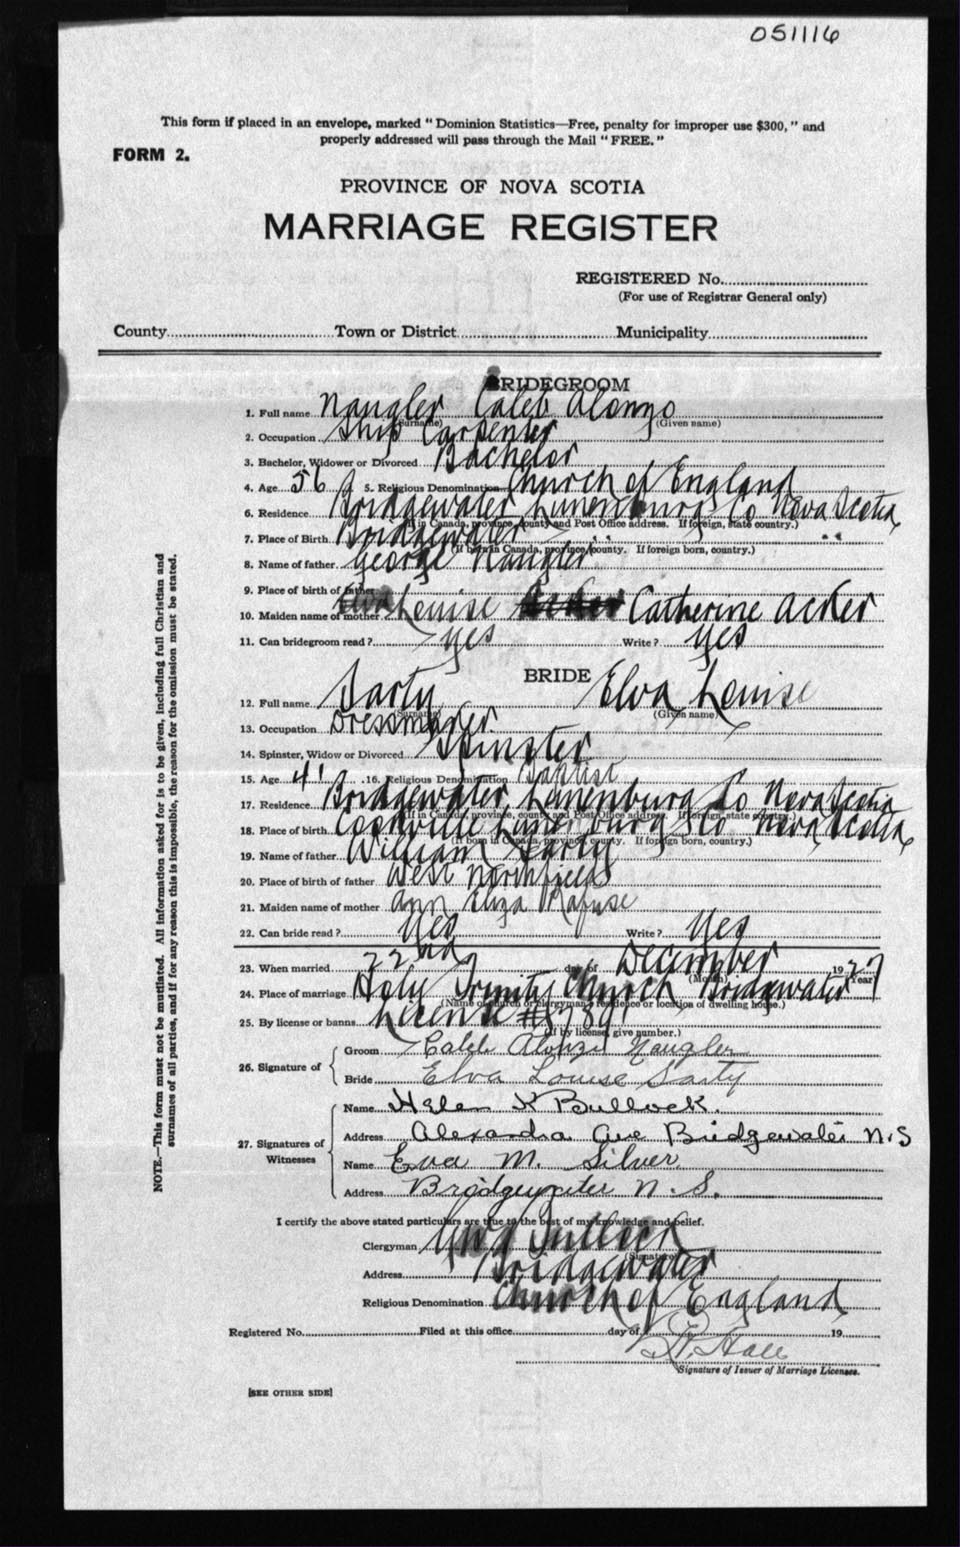 051116
This form if placed in an envelope, marked "Dominion Statistics—Free, penalty for improper use $300," and
properly addressed will pass through the Mail "FREE."
FORM 2.
PROVINCE OF NOVA SCOTIA
MARRIAGE REGISTER
REGISTERED No.
(For use of Registrar General only)
County Town or District Municipality
BRIDEGROOM
1. Full name Naugler Caleb Alonzo
(Surname) (Given name)
2. Occupation Ship Carpenter
3. Bachelor, Widower or Divorced Bachelor
4. Age 56 5. Religious Denomination Church of England
6. Residence Bridgewater Lunenburg Co Nova Scotia
(If in Canada, province, county and Post Office address. If foreign, state country.)
7. Place of Birth Bridgewater " "
(If born in Canada, province/county. If foreign born, country.)
8. Name of father George Naugler
9. Place of birth of father
10. Maiden name of mother Elva Louise Acker Catherine Acker
11. Can bridegroom read? yes Write? yes
BRIDE
12. Full name Sarty Elva Louise
(Surname) (Given name)
13. Occupation Dressmaker
14. Spinster, Widow or Divorced Spinster
15. Age 41 16. Religious Denomination Baptist
17. Residence Bridgewater, Lunenburg Co Nova Scotia
(If in Canada, province, county and Post Office address. If foreign, state country.)
18. Place of birth Conkville Lunenburg Co Nova Scotia
(If born in Canada, province, county. If foreign born, country.)
19. Name of father William Sarty
20. Place of birth of father West Northfield
21. Maiden name of mother Ann Eliza Rafuse
22. Can bride read? Yes Write? Yes
23. When married 22nd day of December 1927
(Month) (Year)
24. Place of marriage Holy Trinity Church Bridgewater
(Name of church or clergyman's residence or location of dwelling house.)
25. By license or banns License #
(If by license, give number.)
26. Signature of
Groom Caleb Alonzo Naugler
Bride Elva Louise Sarty
27. Signatures of Witnesses
Name Helen K Bullock.
Address Alexandra Ave Bridgewater N.S
Name Eva M. Silver
Address Bridgewater N.S.
I certify the above stated particulars are true to the best of my knowledge and belief.
Clergyman Bullock
(Signature)
Address Bridgewater
Religious Denomination Church of England
Registered No. Filed at this office day of 19
Hall
Signature of Issuer of Marriage Licenses.
[SEE OTHER SIDE]
NOTE.—This form must not be mutilated. All information asked for is to be given, including full Christian and
surnames of all parties, and if for any reason this is impossible, the reason for the omission must be stated.